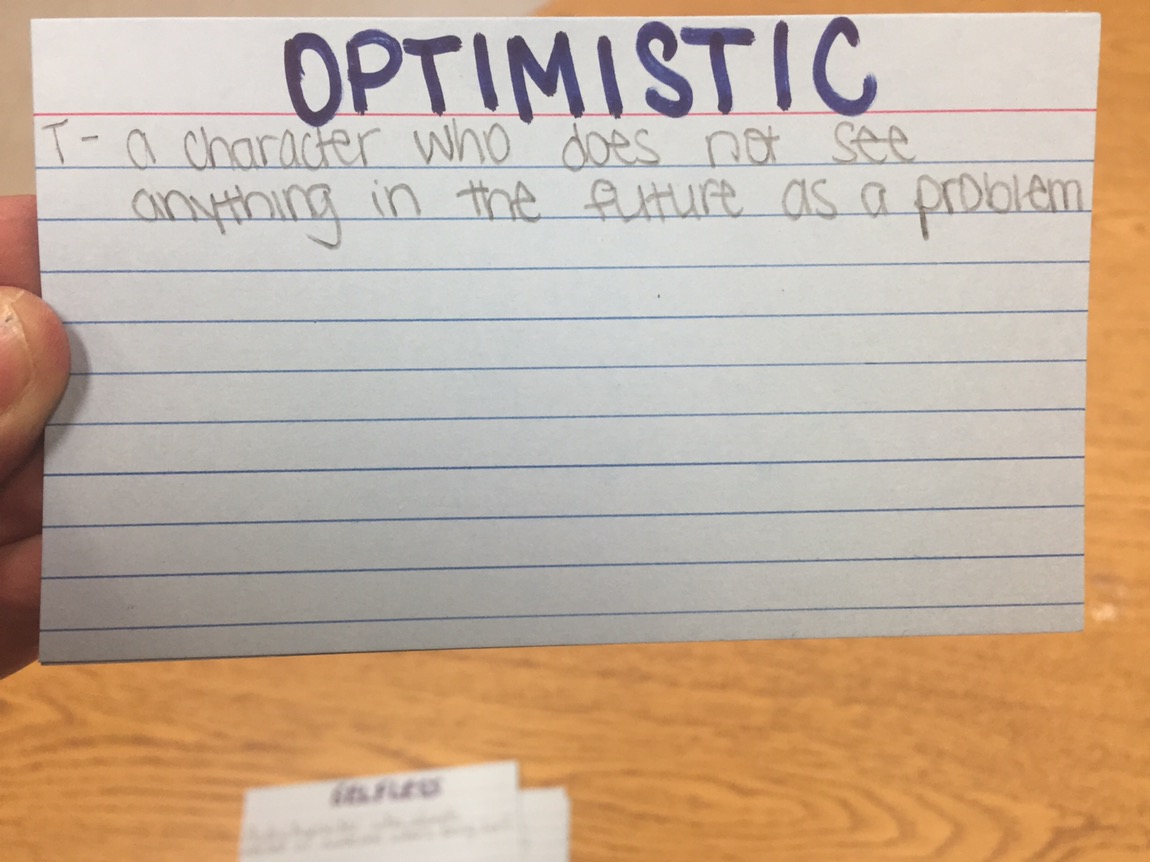 OPTIMISTIC
T- a character who does not see
anything in the future as a problem
SELFLESS